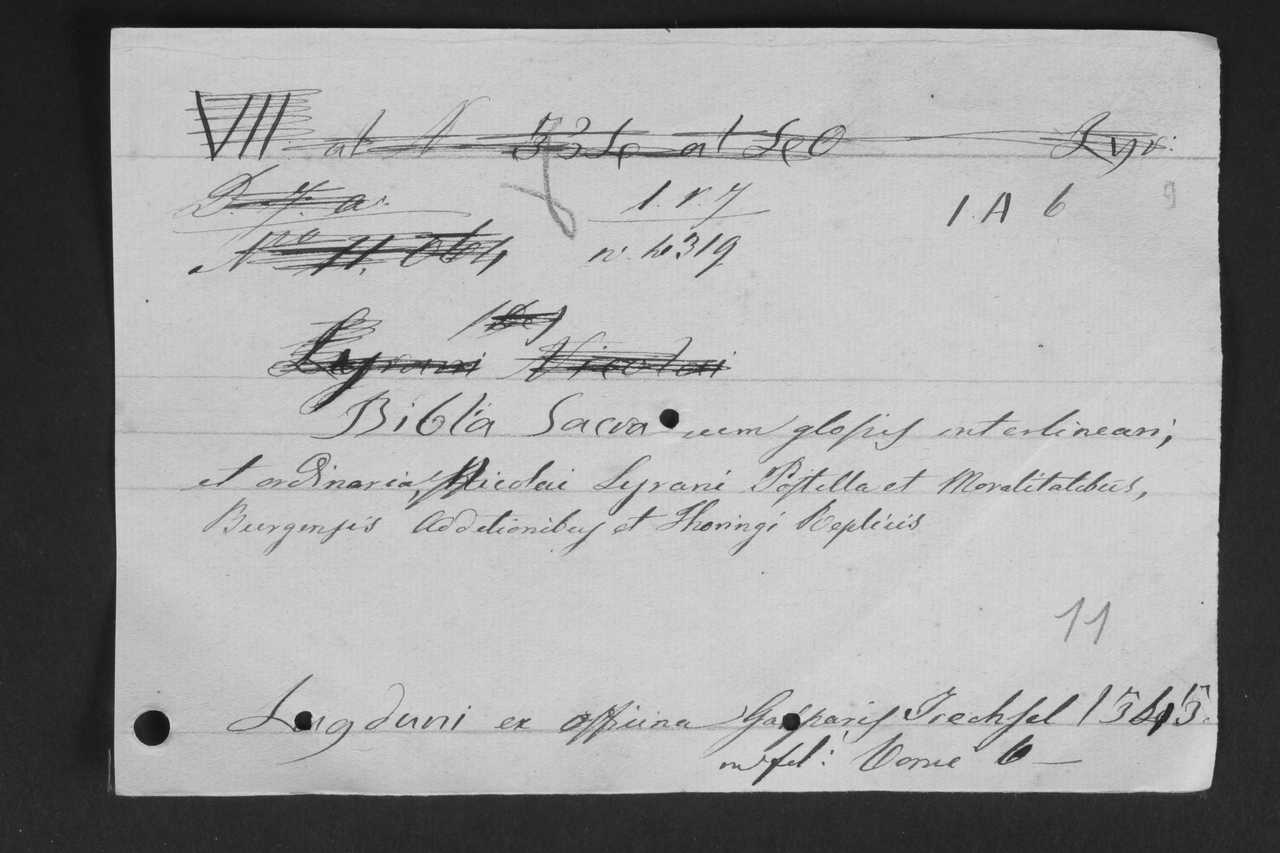 VII at N 534 at Leo Lyr:
D. 7. a. 1. r. 7 1. A 6 9
Nro 11. 064 n. 4319
Lyrani Nicolai
Biblia Sacra cum glossis interlineari,
et ordinaria, Nicolai Lyrani Postilla et Moralitatibus,
Burgensis Additionibus et Thoringi Replicis
11
Lugduni ex officina Gasparis Trechsel 1545.
in fol: Tome 6 —